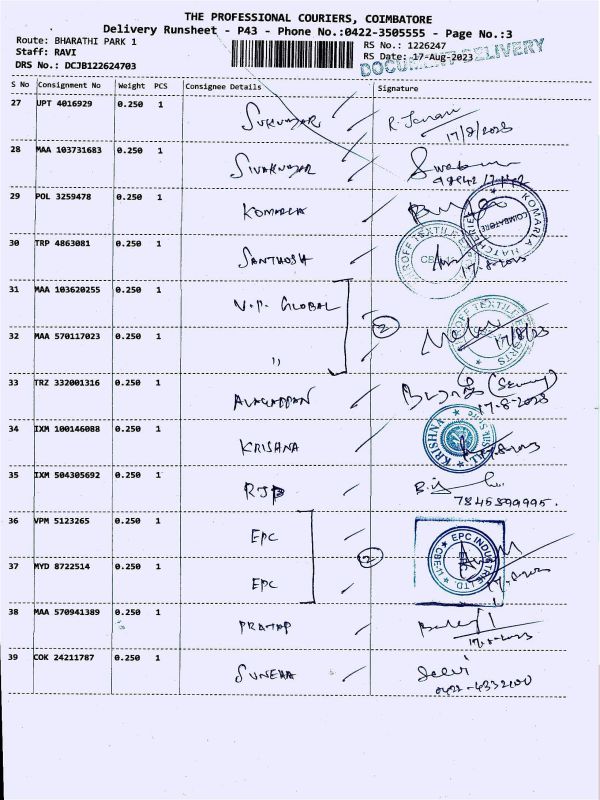 THE PROFESSIONAL COURIERS, COIMBATORE
Delivery Runsheet - P43 - Phone No.:0422-3505555 - Page No.:3
Route: BHARATHI PARK 1
RS No.: 1226247
Staff: RAVI
RS Date: 17-Aug-2023
DOCUMENT DELIVERY
DRS No.: DCJB122624703
S No Consignment No Weight PCS Consignee Details Signature
27 UPT 4016929 0.250 1 SUKUMAR
17/8/2023
28 MAA 103731683 0.250 1 SIVAKUMAR
29 POL 3259478 0.250 1 KOMARLA
KOMARLA HATCHERIES COIMBATORE
30 TRP 4863081 0.250 1 SANTHOSH
17-8-2023
31 MAA 103620255 0.250 1 V.P. GLOBAL
2
32 MAA 570117023 0.250 1 "
17/8/23
33 TRZ 332001316 0.250 1 ALAGAPPAN
17-8-2023
34 IXM 100146088 0.250 1 KRISHNA
KRISHNA
35 IXM 504305692 0.250 1 RJP
7845899995.
36 VPM 5123265 0.250 1 EPC
2
EPC INDUSTRIE LTD. CBE-11
37 MYD 8722514 0.250 1 EPC
38 MAA 570941389 0.250 1 PRATAP
17-8-2023
39 COK 24211787 0.250 1 SUNEHA
Selvi
0422-4332100